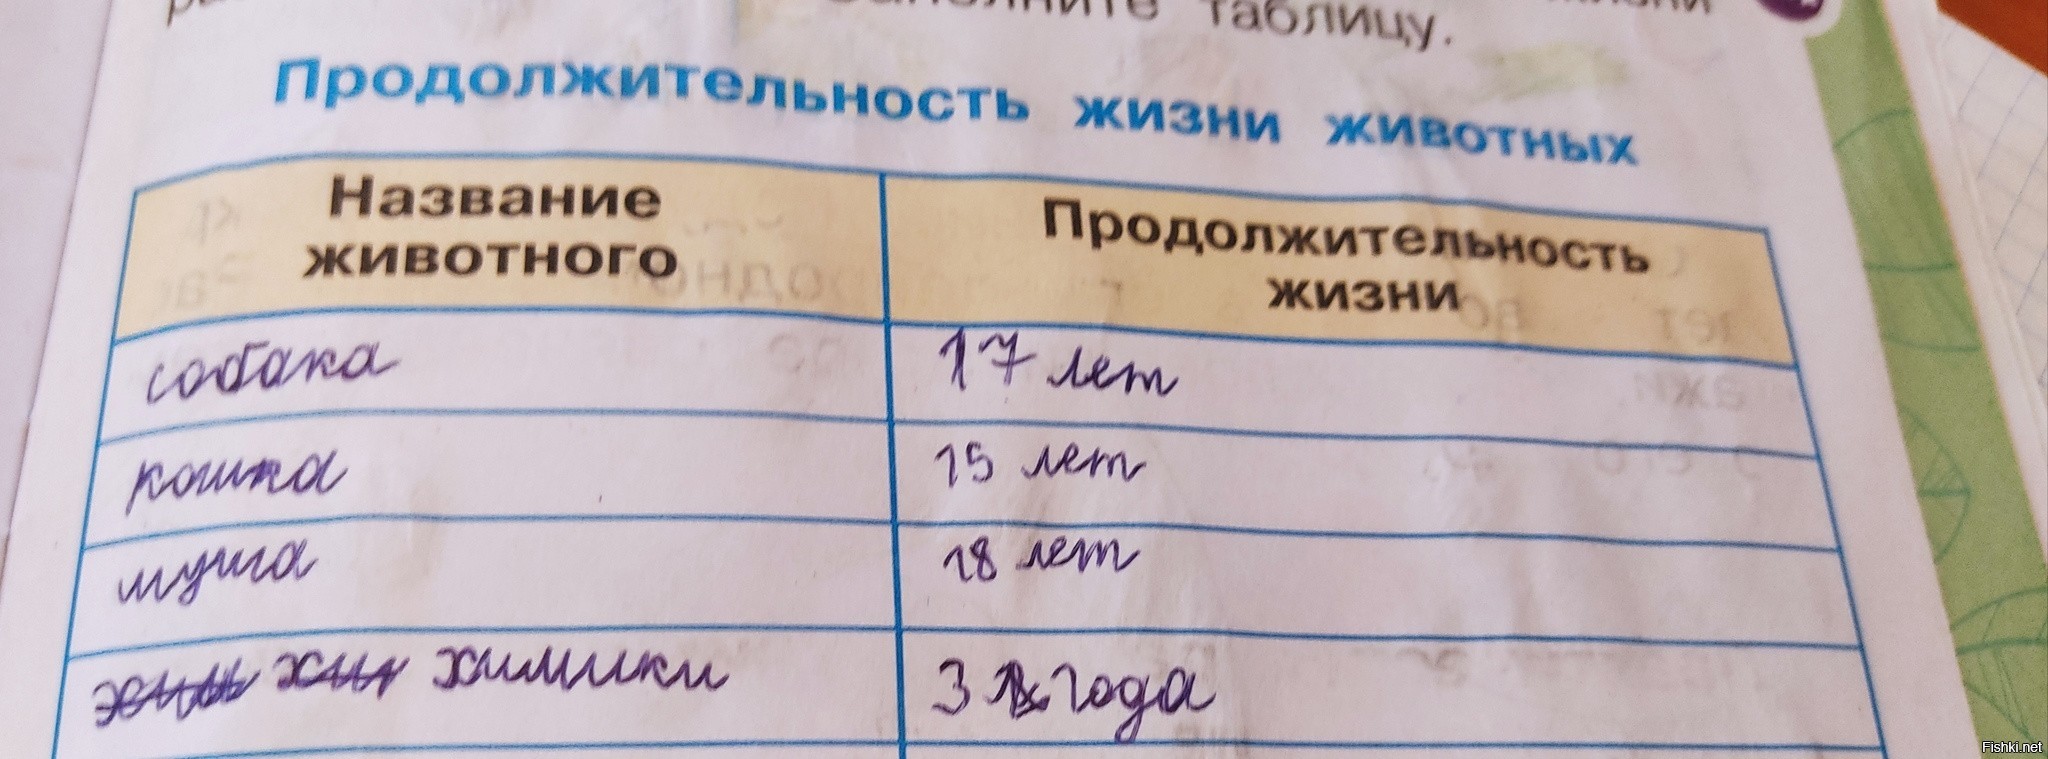 Заполните таблицу.
Продолжительность жизни животных
Название животного
Продолжительность жизни
собака 17 лет
кошка 15 лет
муша 18 лет
химики 3 года
Fishki.net